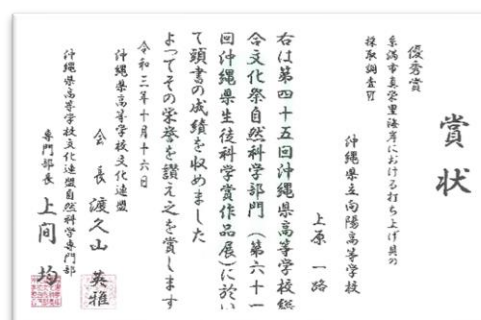 賞状
優秀賞
糸満市真栄里海岸における打ち上げ貝の
採取調査Ⅵ
沖縄県立向陽高等学校
上原 一路
右は第四十五回沖縄県高等学校総
合文化祭自然科学部門(第六十一
回沖縄県生徒科学賞作品展)に於い
て頭書の成績を収めました
よってその栄誉を讃え之を賞します
令和三年十月十六日
沖縄県高等学校文化連盟
会長 渡久山 英雅
沖縄県高等学校文化連盟自然科学専門部
専門部長 上間 均